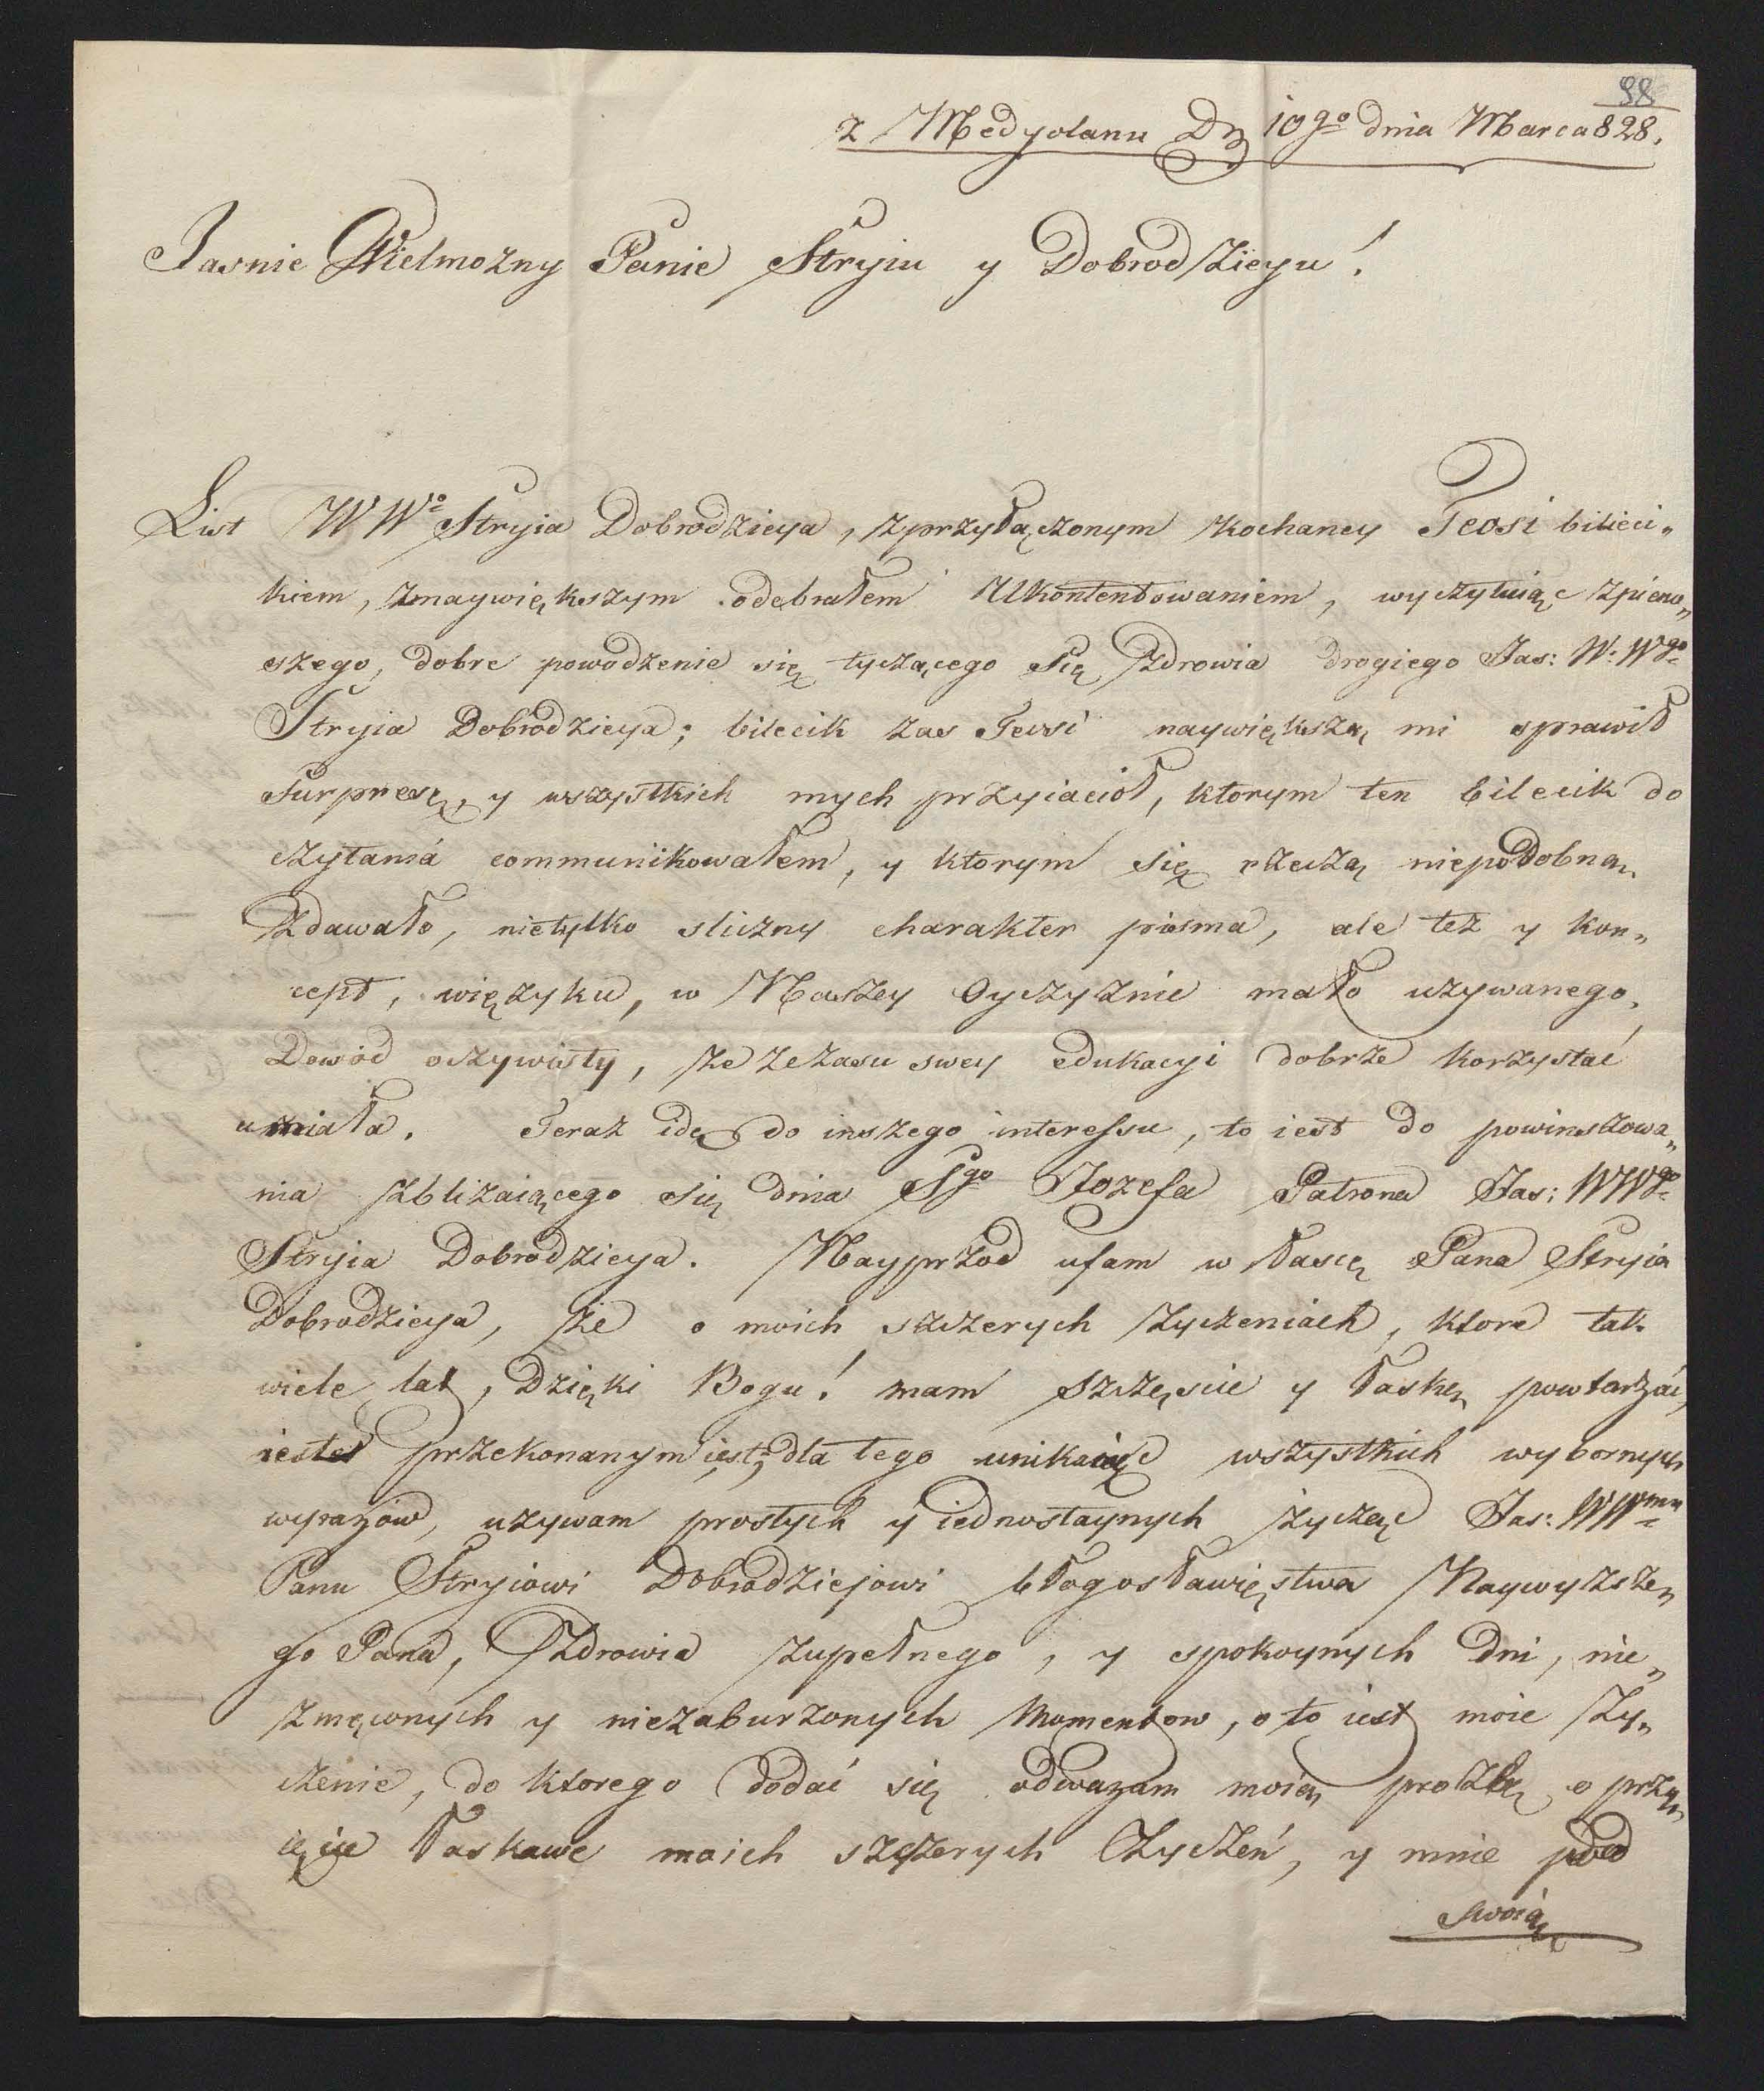 98
z Medyolanu D. 10go dnia Marca 828.
Jasnie Wielmozny Panie Stryiu y Dobrodzieyu!
List WWo Stryia Dobrodzieya, zprzyłączonym kochaney Teosi bilieci„
kiem, znaywiększym odebrałem Ukontentowaniem, wyczytuiąc zpierw„
szego, dobre powodzenie się tyczącego się zdrowia drogiego Jas: W: Wgo
Stryia Dobrodzieya; bilecik zas Teosi naywiększą mi sprawił
Surpresę, y wszystkich mych przyiacioł, ktorym ten bilecik do
czytania communikowałem, y ktorym się rzeczą niepodobną
zdawało, nietylko sliczny charakter pisma, ale też y kon„
cept, więzyku, w Naszey Oyczyznie mało uzywanego,
Dowód oczywisty, ze zczasu swey edukacyi dobrze korzystać
umiała. Teraz idę do inszego interessu, to iest do powinszowa„
nia zbliżaiącego się dnia Sgo Jozefa Patrona Jas: WWgo
Stryia Dobrodzieya. Nayprzod ufam w łascę Pana Stryia
Dobrodzieya, że o moich szczerych życzeniach, ktore tak
wiele lat, Dzięki Bogu! mam szczęscie y łaskę powtarzać,
iestes przekonanym iest; dla tego unikaiąc wszystkich wybornych
wyrazów, uzywam prostych y iednostaynych życząc Jas: WWmu
Panu Stryiowi Dobrodziejowi błogosławięstwa Naywyzsze„
go Pana, Zdrowia zupełnego, y spokoynych Dni, nie„
zmąconych y niezaburzonych Momentow, o to iest moie ży„
czenie, do ktorego dodać się odwazam moię prozbę o przy„
ięcie łaskawe moich szczerych życzeń, y mnie pod
swoią